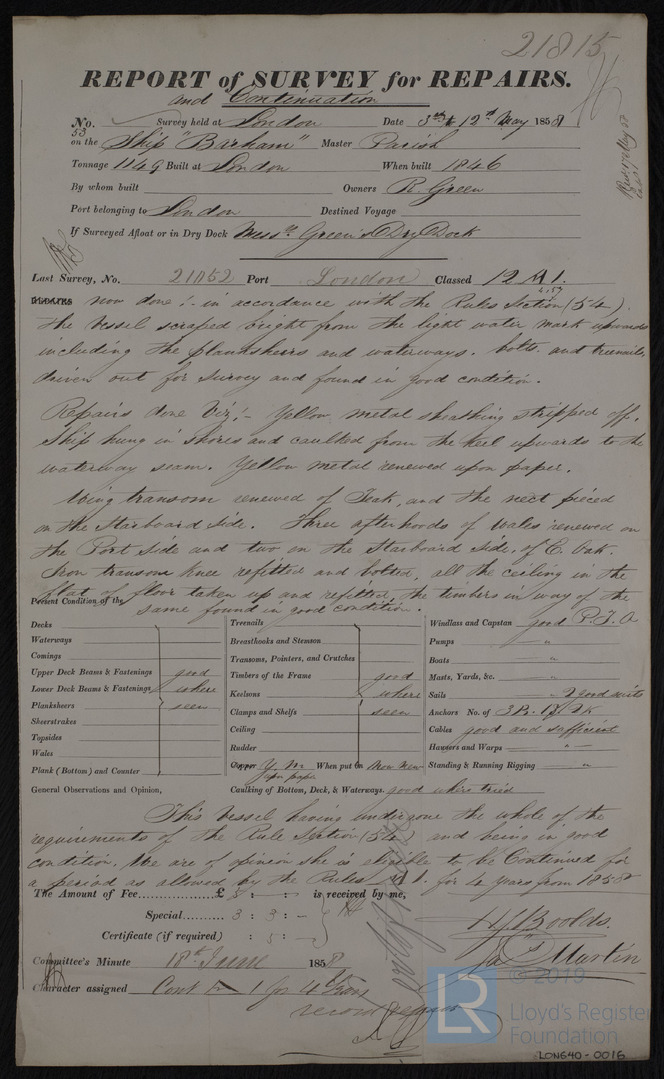 21815
REPORT of SURVEY for REPAIRS.
and Continuation
No. 53 Survey held at London Date 3rd to 12th May 1858
on the Ship "Barham" Master Parish
Tonnage 1149 Built at London When built 1846
By whom built Owners R. Green
Port belonging to London Destined Voyage
If Surveyed Afloat or in Dry Dock Messrs Green's Dry Dock
Last Survey, No. 21052 Port London Classed 12 A 1.
Repairs now done :- in accordance with the Rules Section (54).
The Vessel scraped bright from the light water mark upwards
including the planksheers and waterways. bolts and treenails
driven out for survey and found in good condition.
Repairs done Viz:- Yellow metal sheathing stripped off.
Ship hung in Shores and caulked from the keel upwards to the
waterway seam. Yellow metal renewed upon paper.
Wing transom renewed of Teak, and the next pieced
on the Starboard Side. Three afterhoods of Wales renewed on
the Port Side and two on the Starboard Side, of E. Oak.
Iron transom knee refitted and bolted, all the ceiling in the
flat of floor taken up and refitted, the timbers in way of the
same found in good condition.
Present Condition of the
Decks
Waterways
Comings
Upper Deck Beams & Fastenings good
Lower Deck Beams & Fastenings where
Planksheers seen
Sheerstrakes
Topsides
Wales
Plank (Bottom) and Counter
Treenails
Breasthooks and Stemson
Transoms, Pointers, and Crutches
Timbers of the Frame good
Keelsons where
Clamps and Shelfs seen
Ceiling
Rudder
Copper Y. M. upon paper When put on Now New
Windlass and Capstan good P. I. O
Pumps "
Boats "
Masts, Yards, &c. "
Sails 2 good suits
Anchors No. of 3 B. 1 S. 2 K
Cables good and sufficient
Hawsers and Warps "
Standing & Running Rigging "
General Observations and Opinion, Caulking of Bottom, Deck, & Waterways. good where tried
This Vessel having undergone the whole of the
requirements of the Rule Section (54) and being in good
condition. We are of opinion she is eligible to be Continued for
a period as allowed by the Rules A 1. for 4 years from 1858
The Amount of Fee £ 5 : : is received by me,
Special 3 : 3 : -
Certificate (if required) : 5 : -
Committee's Minute 18th June 1858
Character assigned Cont A 1 for 4 Years
Jas Martin
© 2019
LR
Lloyd's Register
Foundation
LON640-0016